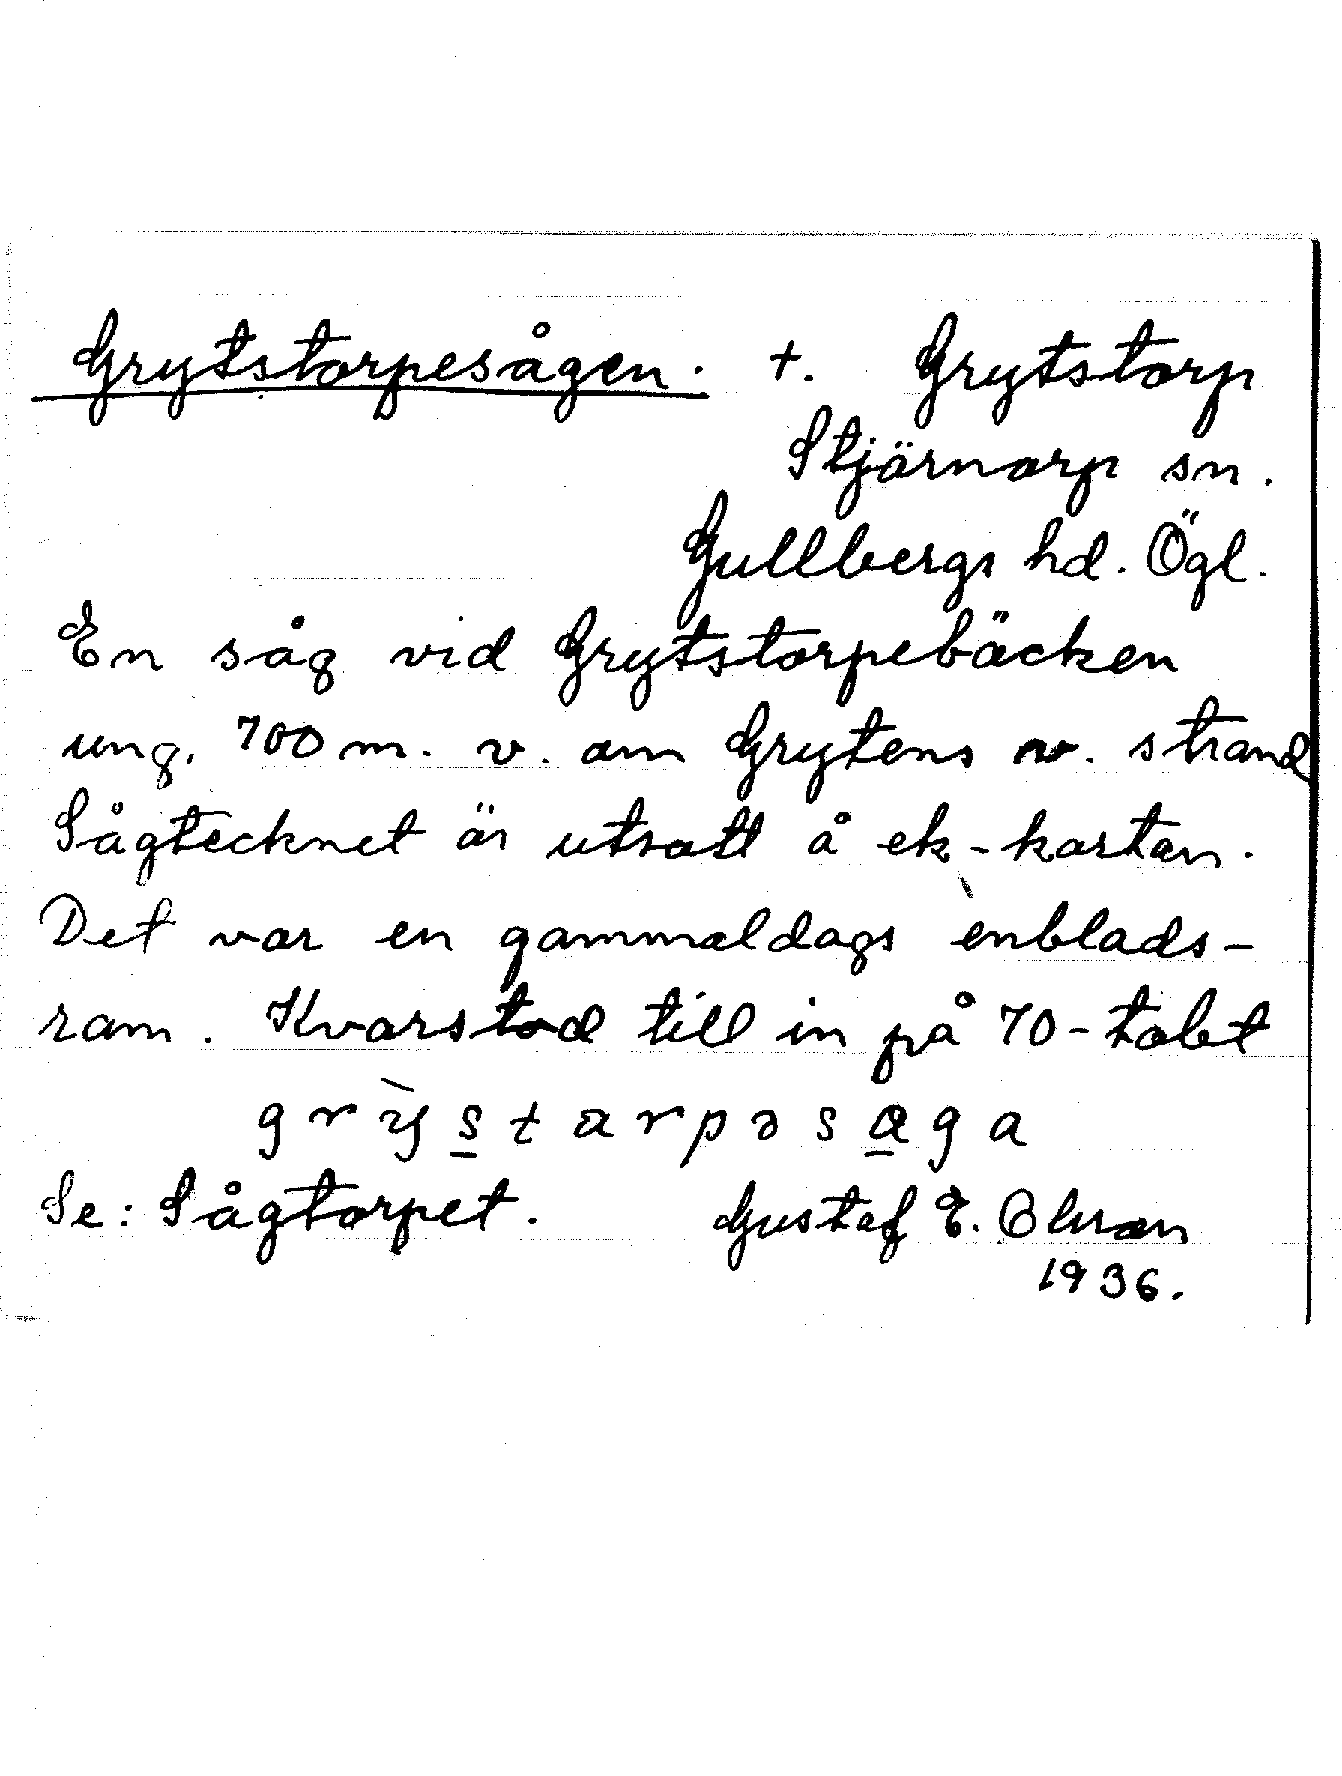 Grytstorpesågen. +. Grytstorp
Stjärnorp sn.
Gullbergs hd. Ögl.
En såg vid Grytstorpebäcken
ung. 700 m. v. om Grytens v. strand
Sågtecknet är utsatt å ek-kartan.
Det var en gammaldags enblads-
ram. Kvarstod till in på 70-talet
grỳstarpəsaga
Se: Sågtorpet. Gustaf E. Olsson
1936.